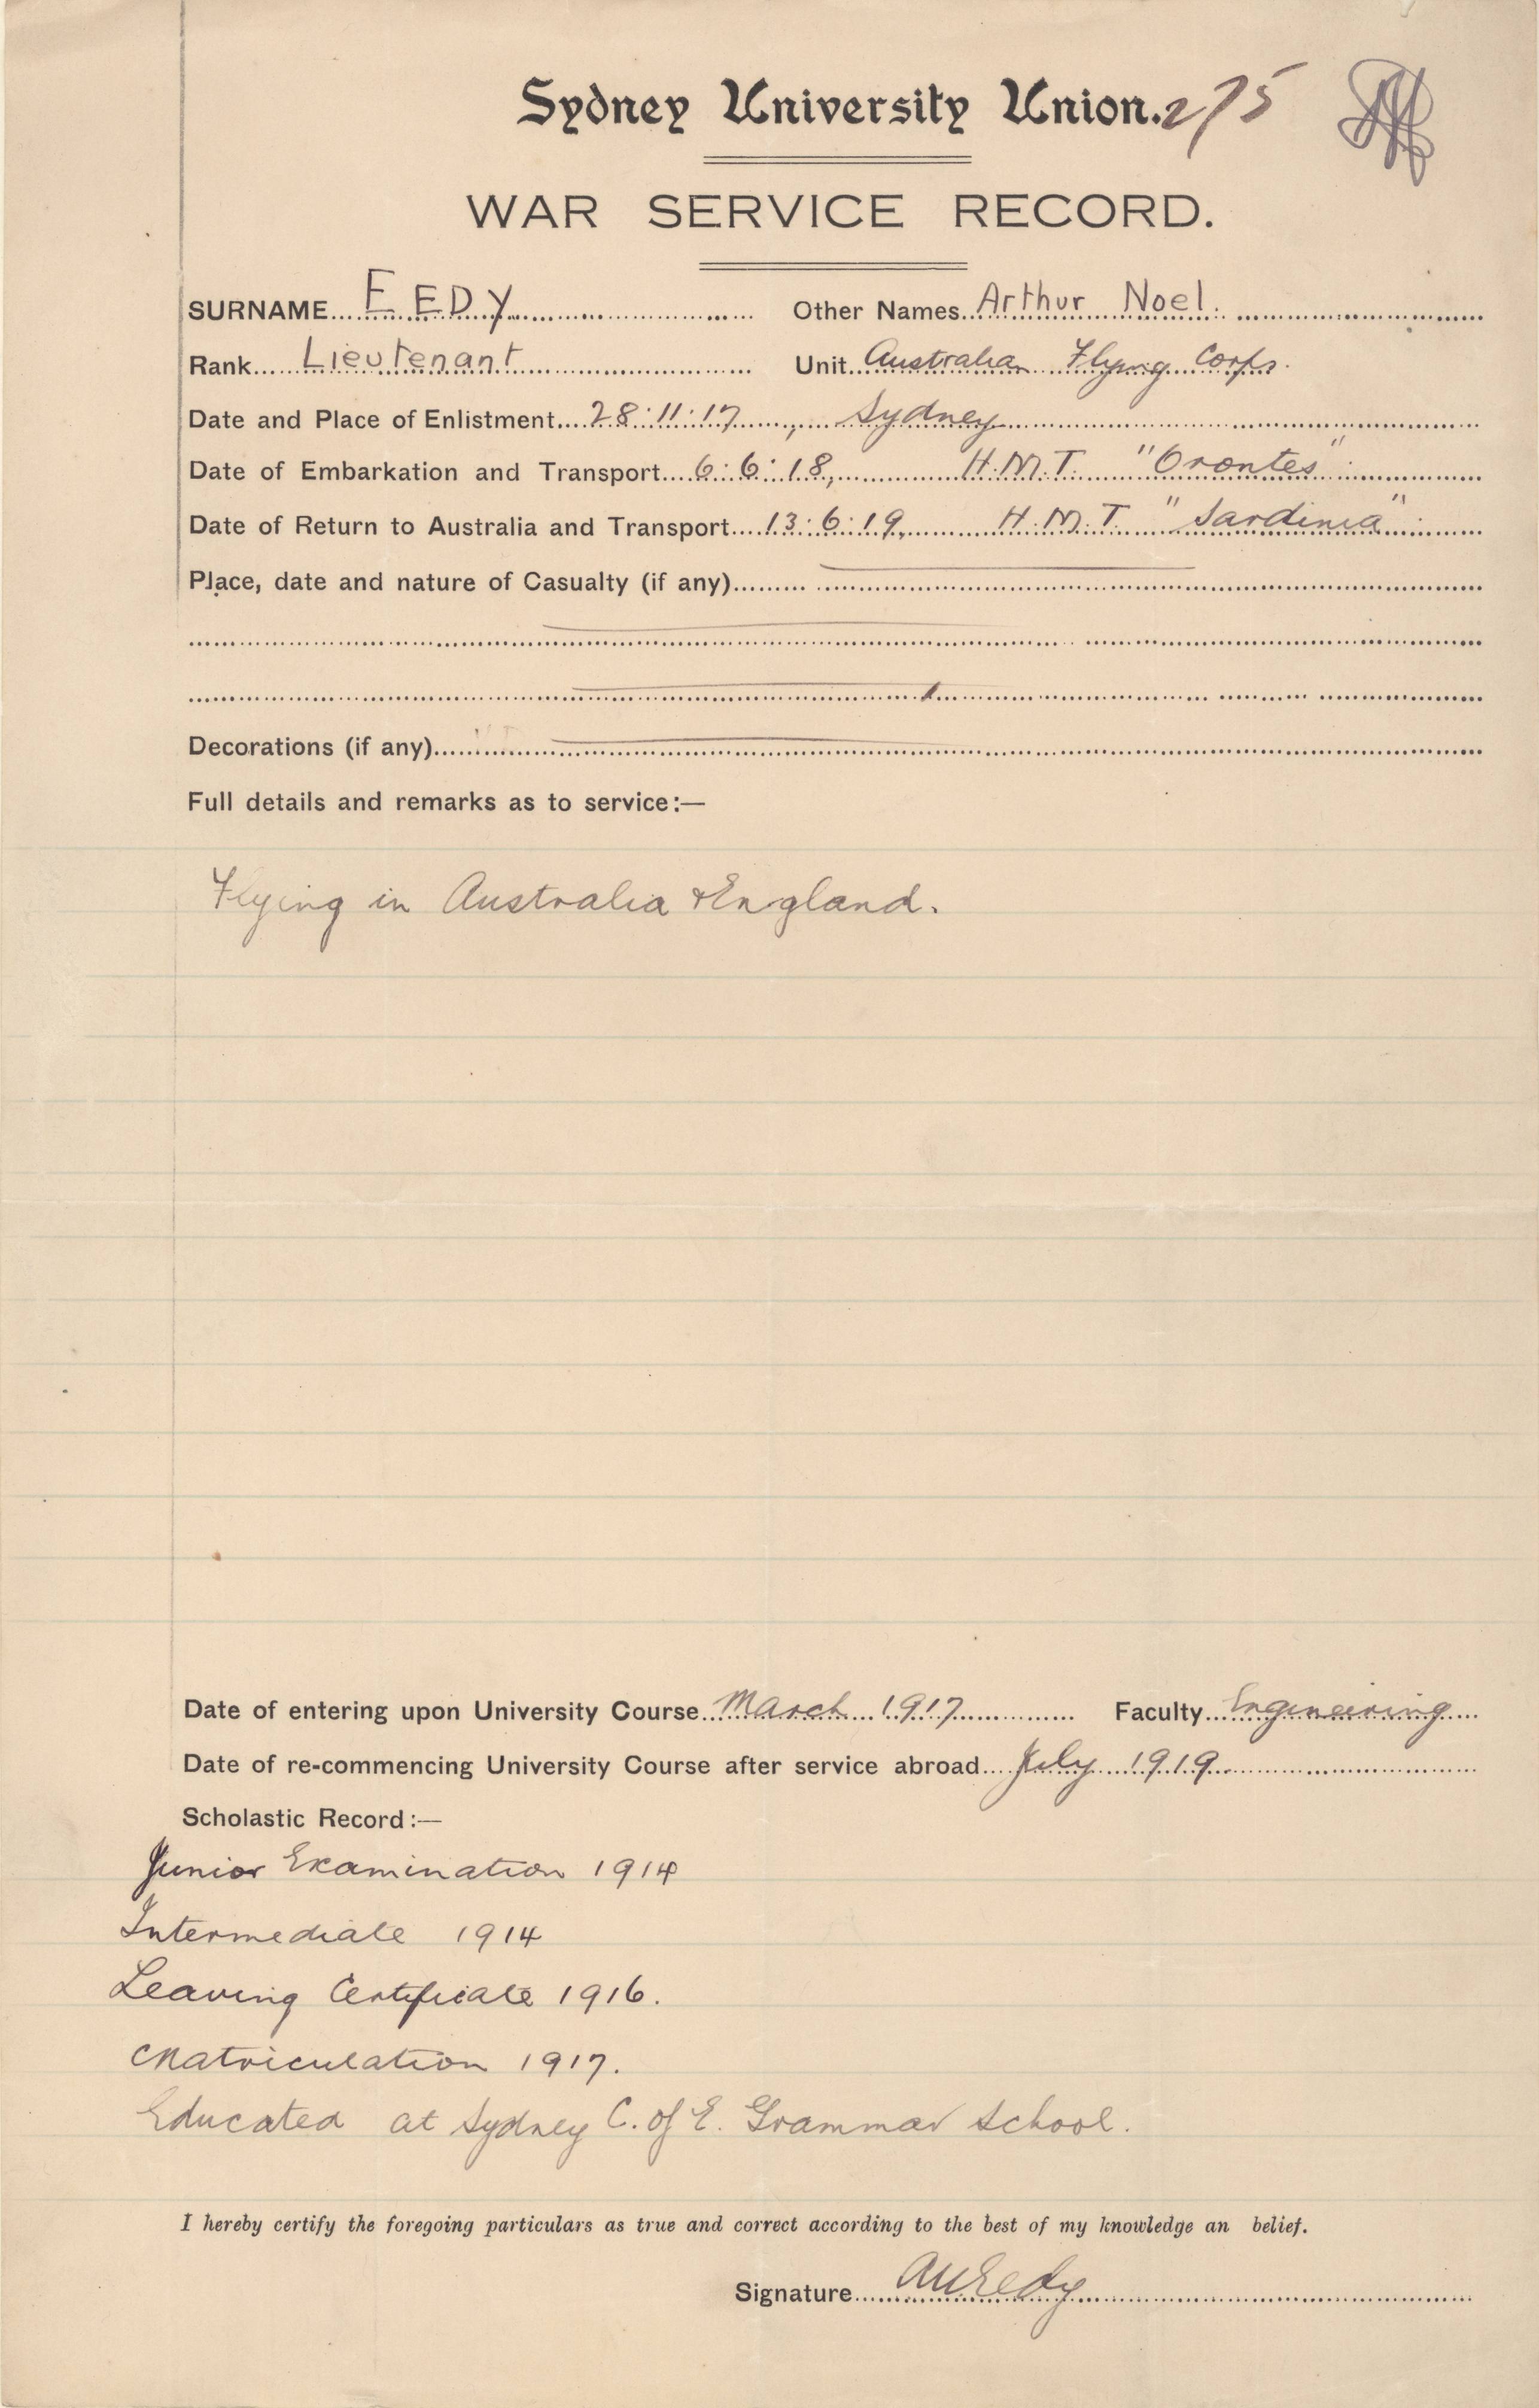 Sydney University Union. 275
WAR SERVICE RECORD.
SURNAME EEDY Other Names Arthur Noel.
Rank Lieutenant Unit Australian Flying Corps.
Date and Place of Enlistment 28:11:17, Sydney
Date of Embarkation and Transport 6:6:18, H.M.T. "Orontes"
Date of Return to Australia and Transport 13:6:19, H.M.T. "Sardinia"
Place, date and nature of Casualty (if any)
Decorations (if any)
Full details and remarks as to service:—
Flying in Australia & England.
Date of entering upon University Course March 1917 Faculty Engineering
Date of re-commencing University Course after service abroad July 1919
Scholastic Record:—
Junior Examination 1914
Intermediate 1914
Leaving Certificate 1916.
Matriculation 1917.
Educated at Sydney C. of E. Grammar School.
I hereby certify the foregoing particulars as true and correct according to the best of my knowledge an belief.
Signature ANEedy